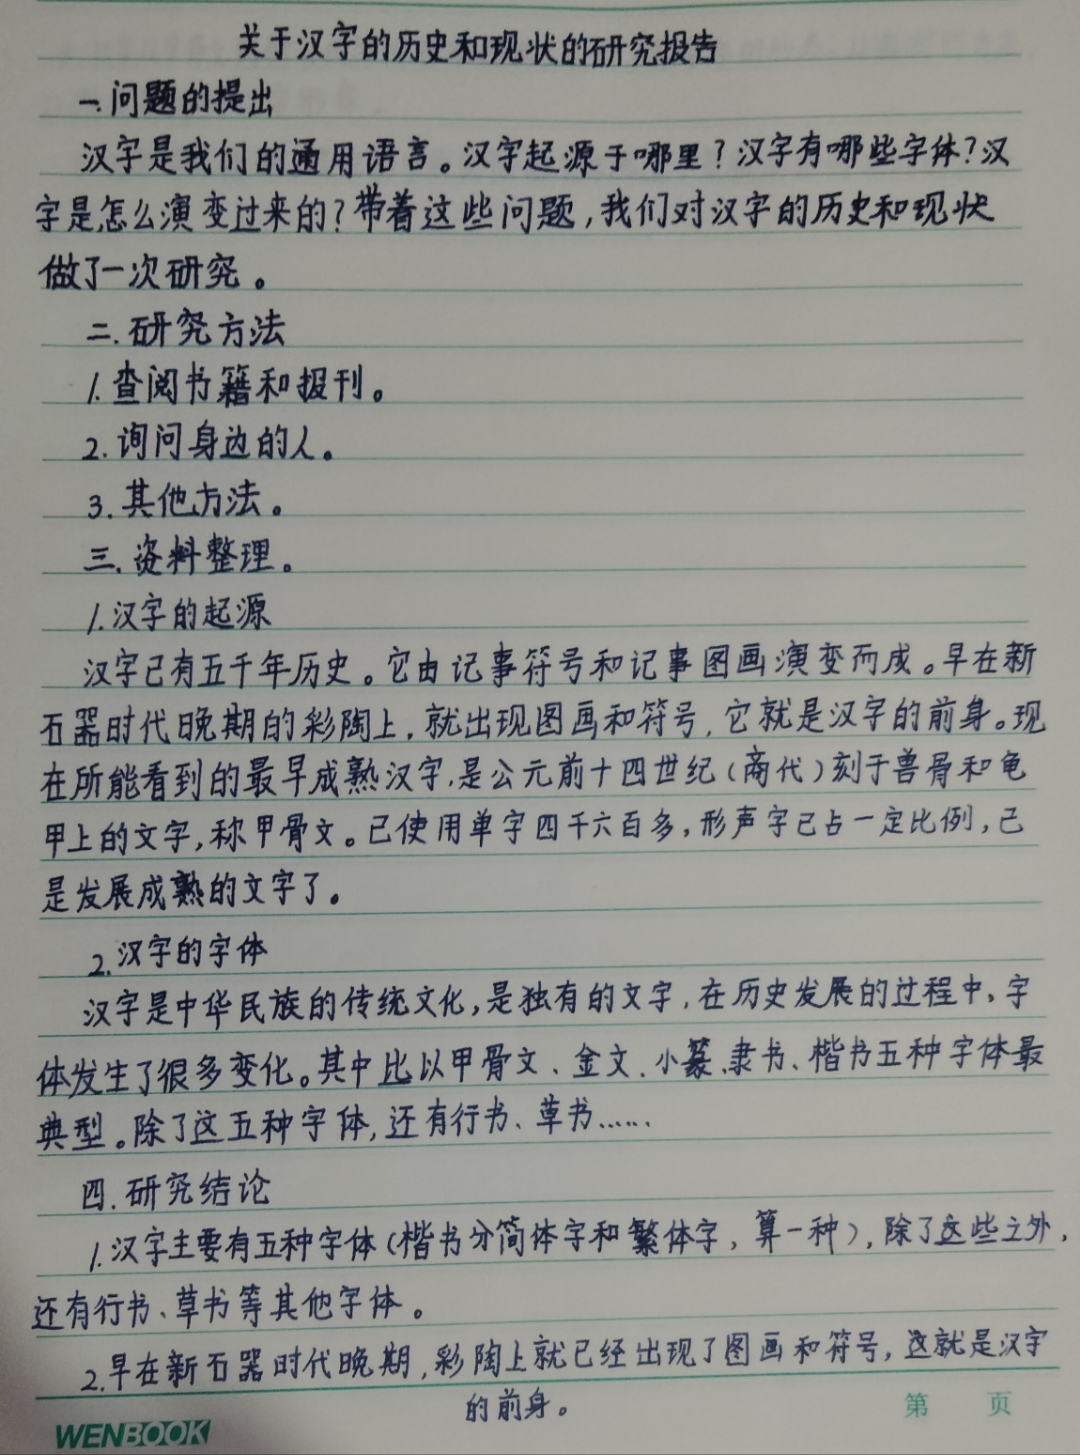 关于汉字的历史和现状的研究报告
一.问题的提出
汉字是我们的通用语言。汉字起源于哪里？汉字有哪些字体？汉
字是怎么演变过来的？带着这些问题，我们对汉字的历史和现状
做了一次研究。
二.研究方法
1.查阅书籍和报刊。
2.询问身边的人。
3.其他方法。
三.资料整理。
1.汉字的起源
汉字已有五千年历史。它由记事符号和记事图画演变而成。早在新
石器时代晚期的彩陶上，就出现图画和符号，它就是汉字的前身。现
在所能看到的最早成熟汉字，是公元前十四世纪（商代）刻于兽骨和龟
甲上的文字，称甲骨文。已使用单字四千六百多，形声字已占一定比例，已
是发展成熟的文字了。
2.汉字的字体
汉字是中华民族的传统文化，是独有的文字，在历史发展的过程中，字
体发生了很多变化。其中比以甲骨文、金文、小篆、隶书、楷书五种字体最
典型。除了这五种字体，还有行书、草书……
四.研究结论
1.汉字主要有五种字体（楷书分简体字和繁体字，算一种），除了这些之外，
还有行书、草书等其他字体。
2.早在新石器时代晚期，彩陶上就已经出现了图画和符号，这就是汉字
的前身。
第 页
WENBOOK